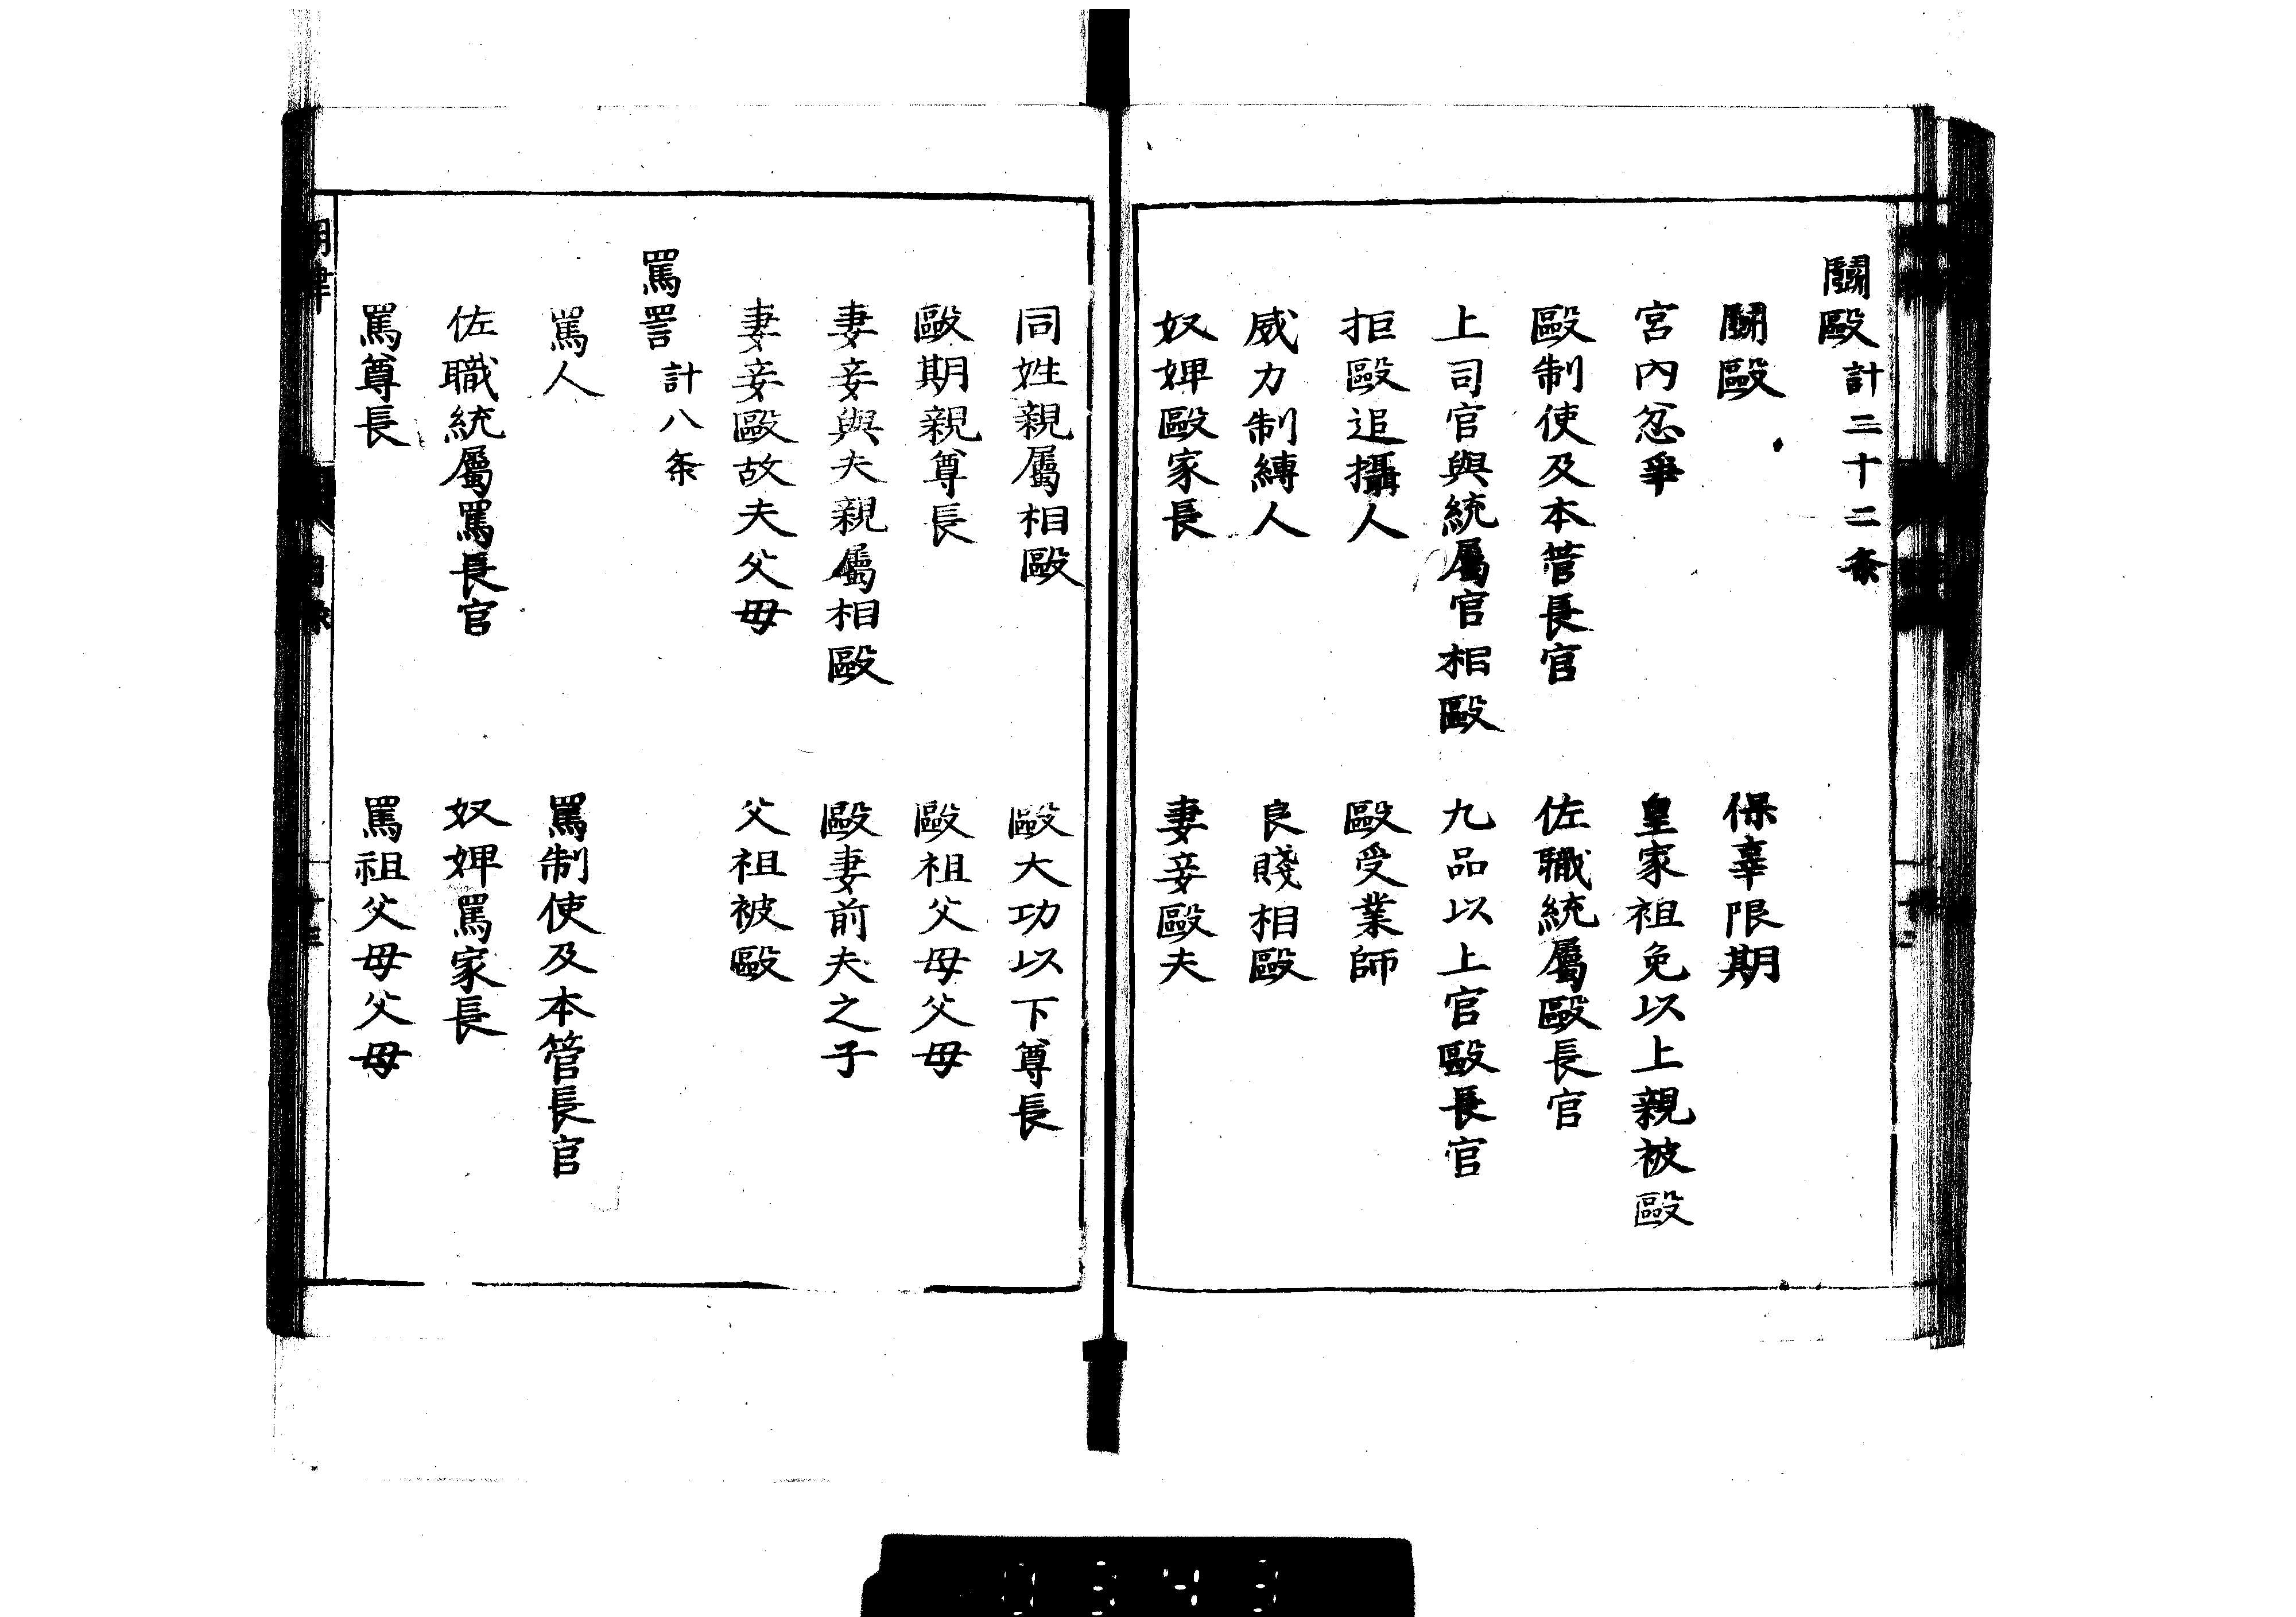 鬭毆 計二十二条
鬭毆 保辜限期
宮內忿爭 皇家袒免以上親被毆
毆制使及本管長官 佐職統屬毆長官
上司官與統屬官相毆 九品以上官毆長官
拒毆追攝人 毆受業師
威力制縛人 良賤相毆
奴婢毆家長 妻妾毆夫
同姓親屬相毆 毆大功以下尊長
毆期親尊長 毆祖父母父母
妻妾與夫親屬相毆 毆妻前夫之子
妻妾毆故夫父母 父祖被毆
罵詈 計八条
罵人 罵制使及本管長官
佐職統屬罵長官 奴婢罵家長
罵尊長 罵祖父母父母
0343